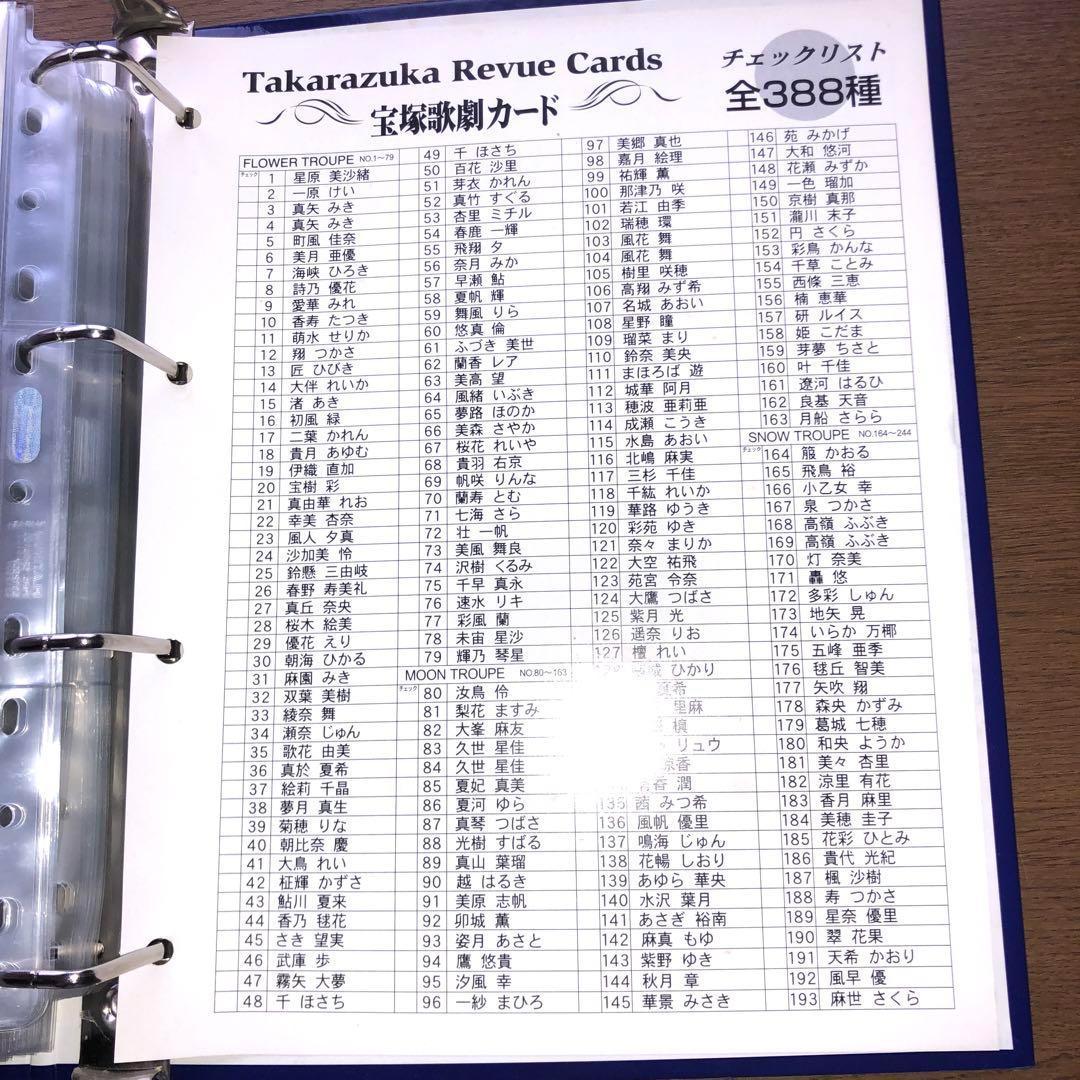 Takarazuka Revue Cards
宝塚歌劇カード
チェックリスト
全388種
FLOWER TROUPE NO.1〜79
チェック 1 星原 美沙緒
2 一原 けい
3 真矢 みき
4 真矢 みき
5 町風 佳奈
6 美月 亜優
7 海峡 ひろき
8 詩乃 優花
9 愛華 みれ
10 香寿 たつき
11 萌水 せりか
12 翔 つかさ
13 匠 ひびき
14 大伴 れいか
15 渚 あき
16 初風 緑
17 二葉 かれん
18 貴月 あゆむ
19 伊織 直加
20 宝樹 彩
21 真由華 れお
22 幸美 杏奈
23 風人 夕真
24 沙加美 怜
25 鈴懸 三由岐
26 春野 寿美礼
27 真丘 奈央
28 桜木 絵美
29 優花 えり
30 朝海 ひかる
31 麻園 みき
32 双葉 美樹
33 綾奈 舞
34 瀬奈 じゅん
35 歌花 由美
36 真於 夏希
37 絵莉 千晶
38 夢月 真生
39 菊穂 りな
40 朝比奈 慶
41 大鳥 れい
42 柾輝 かずさ
43 鮎川 夏来
44 香乃 毬花
45 さき 望実
46 武庫 歩
47 霧矢 大夢
48 千 ほさち
49 千 ほさち
50 百花 沙里
51 芽衣 かれん
52 真竹 すぐる
53 杏里 ミチル
54 春鹿 一輝
55 飛翔 夕
56 奈月 みか
57 早瀬 鮎
58 夏帆 輝
59 舞風 りら
60 悠真 倫
61 ふづき 美世
62 蘭香 レア
63 美高 望
64 風緒 いぶき
65 夢路 ほのか
66 美森 さやか
67 桜花 れいや
68 貴羽 右京
69 帆咲 りんな
70 蘭寿 とむ
71 七海 さら
72 壮 一帆
73 美風 舞良
74 沢樹 くるみ
75 千早 真永
76 速水 リキ
77 彩風 蘭
78 未宙 星沙
79 輝乃 琴星
MOON TROUPE NO.80〜163
チェック 80 汝鳥 伶
81 梨花 ますみ
82 大峯 麻友
83 久世 星佳
84 久世 星佳
85 夏妃 真美
86 夏河 ゆら
87 真琴 つばさ
88 光樹 すばる
89 真山 葉瑠
90 越 はるき
91 美原 志帆
92 卯城 薫
93 姿月 あさと
94 鷹 悠貴
95 汐風 幸
96 一紗 まひろ
97 美郷 真也
98 嘉月 絵理
99 祐輝 薫
100 那津乃 咲
101 若江 由季
102 瑞穂 環
103 風花 舞
104 風花 舞
105 樹里 咲穂
106 高翔 みず希
107 名城 あおい
108 星野 瞳
109 瑠菜 まり
110 鈴奈 美央
111 まほろば 遊
112 城華 阿月
113 穂波 亜莉亜
114 成瀬 こうき
115 水島 あおい
116 北嶋 麻実
117 三杉 千佳
118 千紘 れいか
119 華路 ゆうき
120 彩苑 ゆき
121 奈々 まりか
122 大空 祐飛
123 苑宮 令奈
124 大鷹 つばさ
125 紫月 光
126 遥奈 りお
127 檀 れい
城 ひかり
希
里麻
リュウ
香
潤
135 茜 みつ希
136 風帆 優里
137 鳴海 じゅん
138 花暢 しおり
139 あゆら 華央
140 水沢 葉月
141 あさぎ 裕南
142 麻真 もゆ
143 紫野 ゆき
144 秋月 章
145 華景 みさき
146 苑 みかげ
147 大和 悠河
148 花瀬 みずか
149 一色 瑠加
150 京樹 真那
151 瀧川 末子
152 円 さくら
153 彩鳥 かんな
154 千草 ことみ
155 西條 三恵
156 楠 恵華
157 研 ルイス
158 姫 こだま
159 芽夢 ちさと
160 叶 千佳
161 遼河 はるひ
162 良基 天音
163 月船 さらら
SNOW TROUPE NO.164〜244
チェック 164 箙 かおる
165 飛鳥 裕
166 小乙女 幸
167 泉 つかさ
168 高嶺 ふぶき
169 高嶺 ふぶき
170 灯 奈美
171 轟 悠
172 多彩 しゅん
173 地矢 晃
174 いらか 万椰
175 五峰 亜季
176 毬丘 智美
177 矢吹 翔
178 森央 かずみ
179 葛城 七穂
180 和央 ようか
181 美々 杏里
182 涼里 有花
183 香月 麻里
184 美穂 圭子
185 花彩 ひとみ
186 貴代 光紀
187 楓 沙樹
188 寿 つかさ
189 星奈 優里
190 翠 花果
191 天希 かおり
192 風早 優
193 麻世 さくら